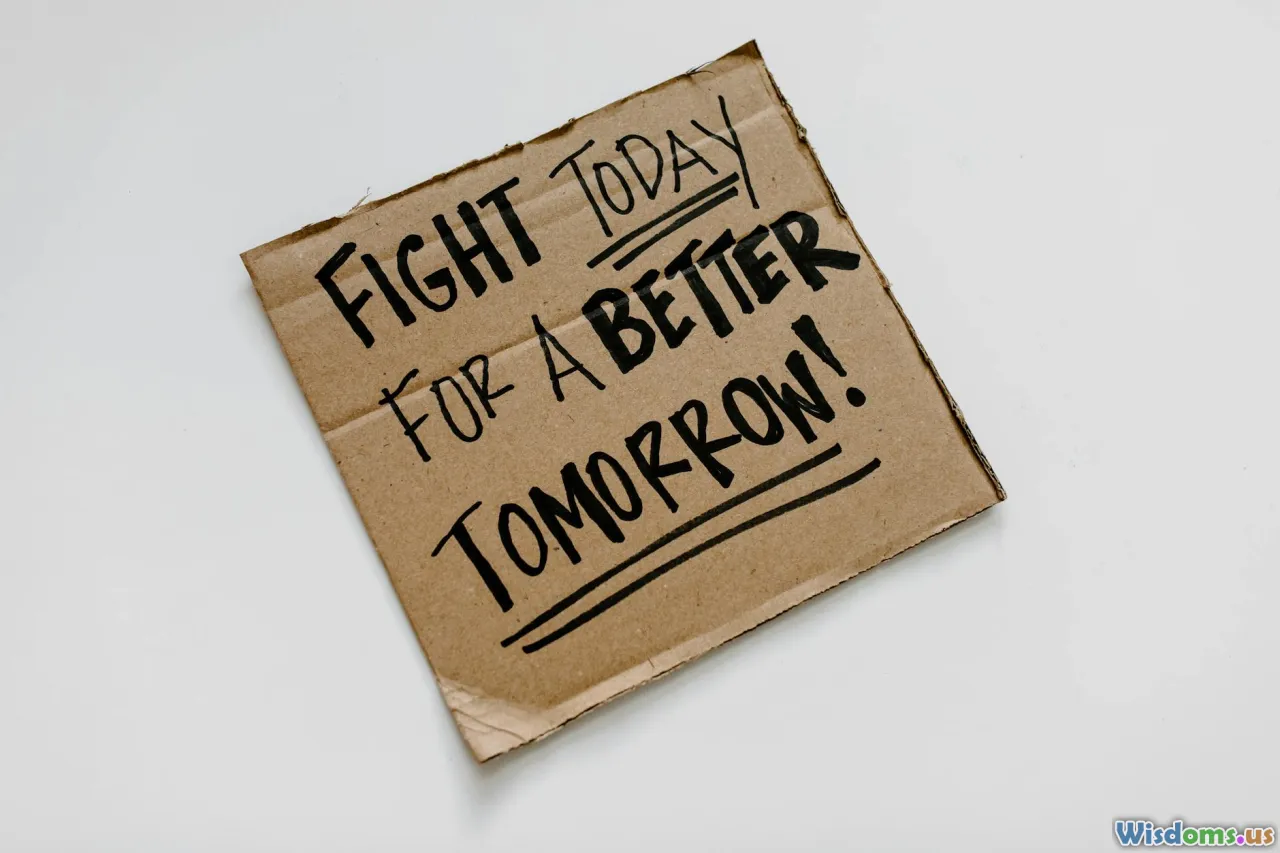 FIGHT TODAY
FOR A BETTER
TOMORROW!
Wisdoms.us